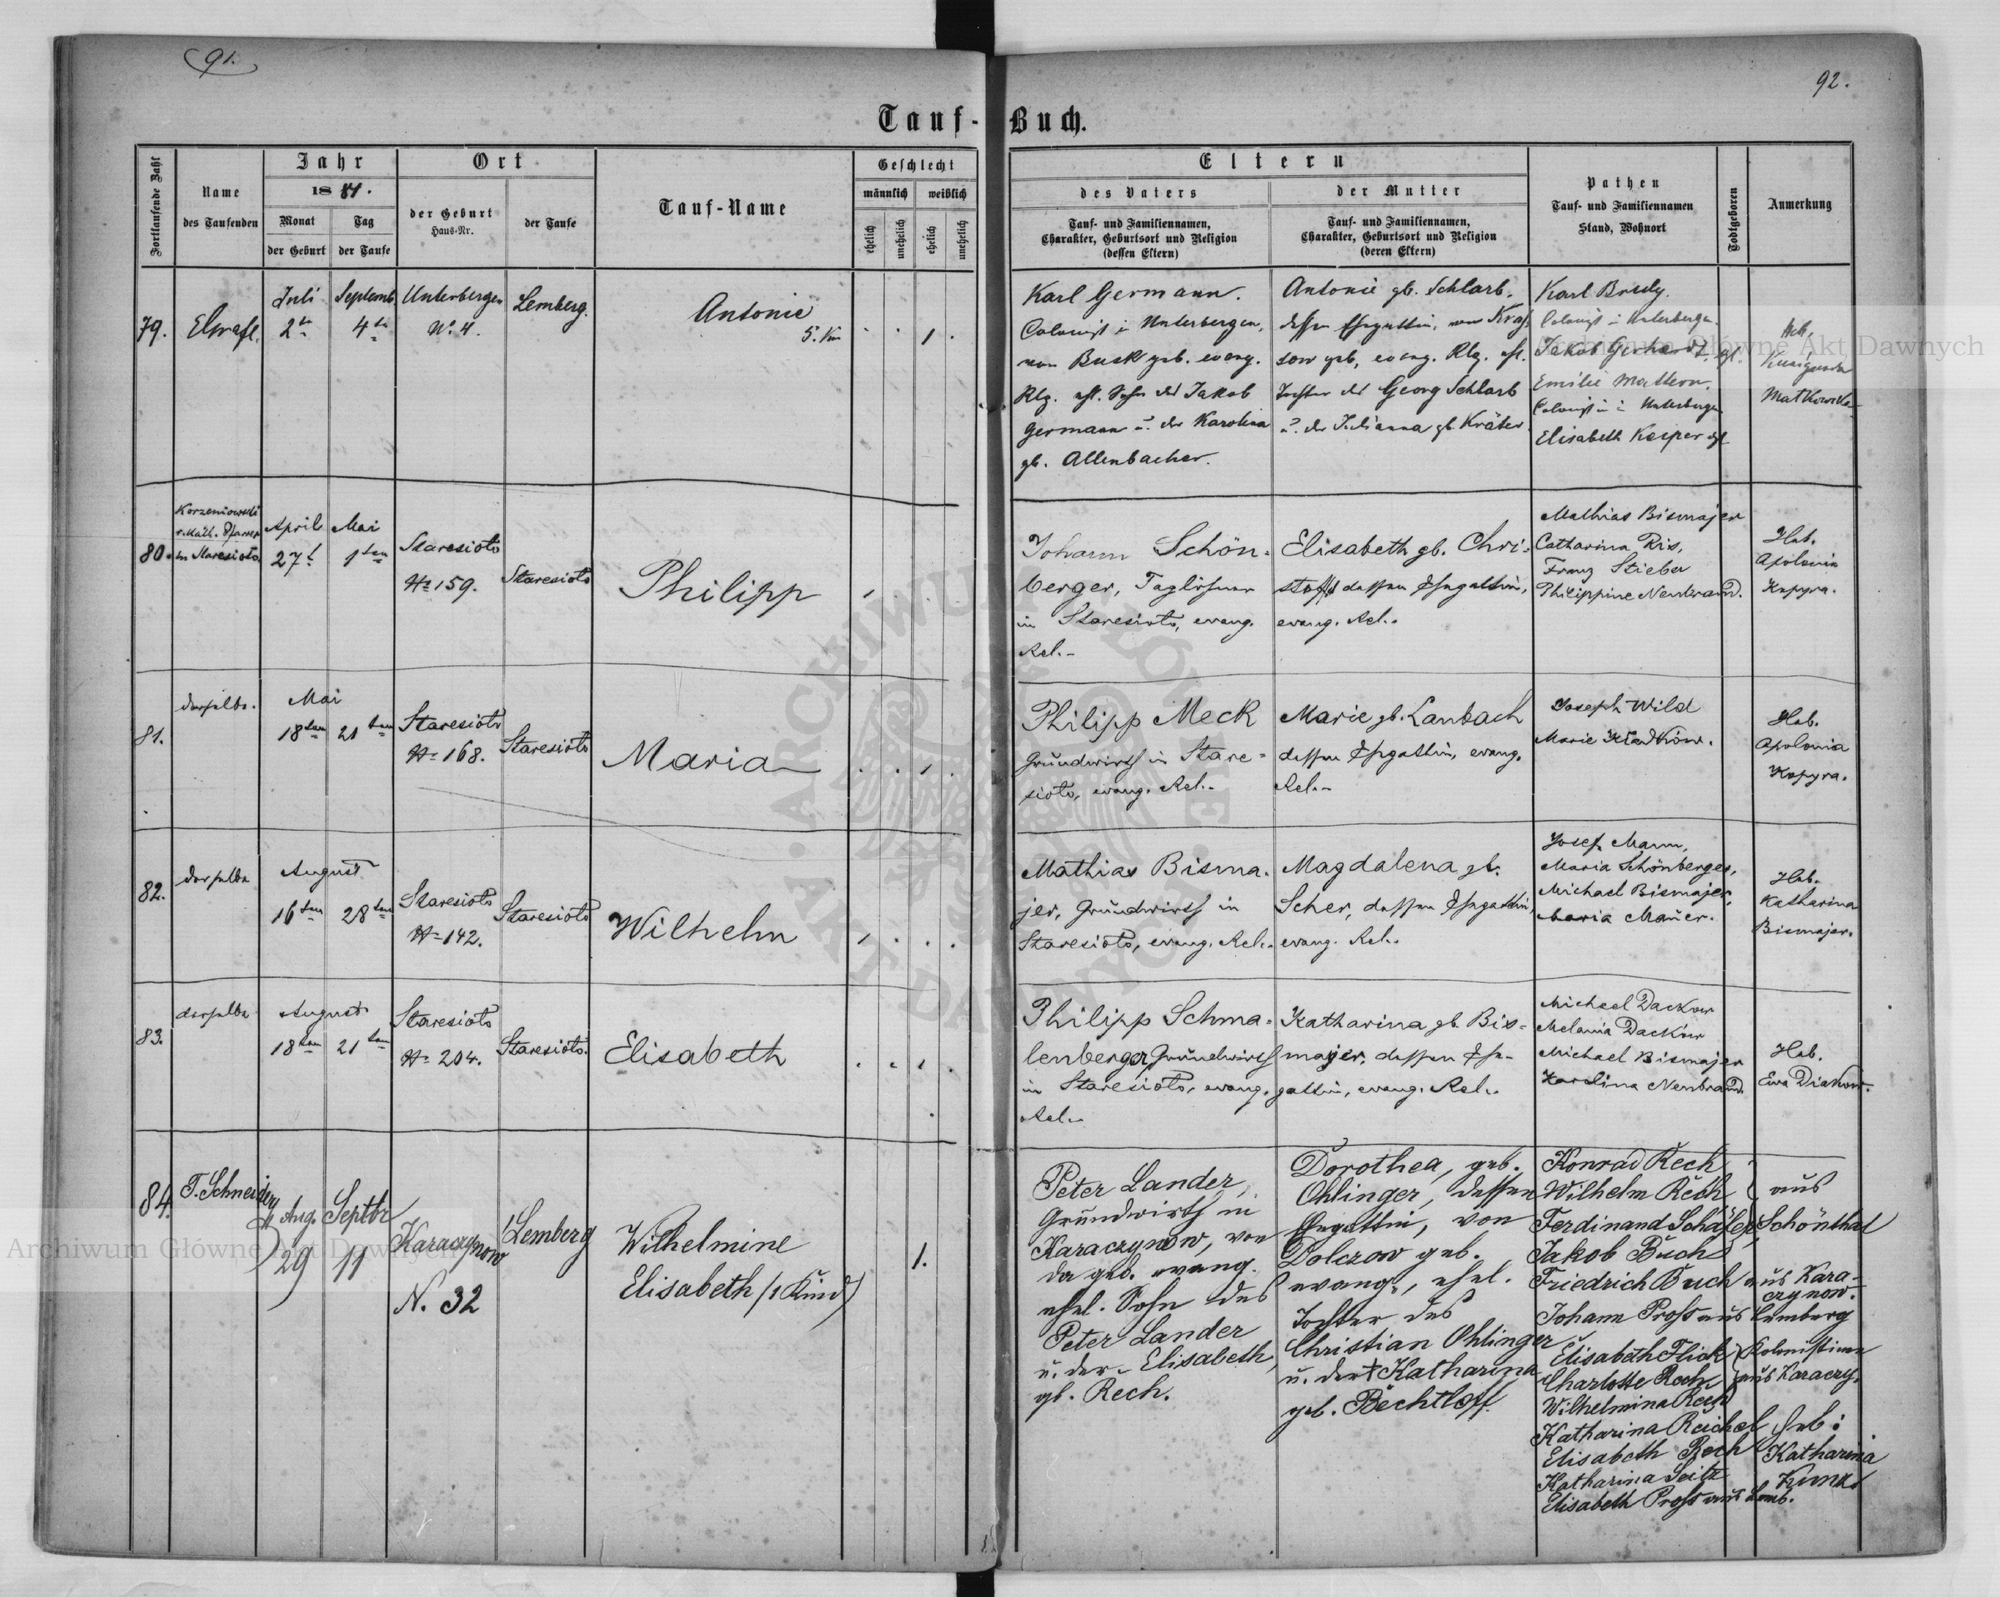 91.
92.
Tauf-Buch.
Fortlaufende Zahl
Name
des Taufenden
Jahr
1881.
Monat
Tag
der Geburt
der Taufe
Ort
der Geburt
Haus-Nr.
der Taufe
Tauf-Name
Geschlecht
männlich
weiblich
ehelich
unehelich
ehelich
unehelich
Eltern
des Vaters
Tauf- und Familiennamen,
Charakter, Geburtsort und Religion
(dessen Eltern)
der Mutter
Tauf- und Familiennamen,
Charakter, Geburtsort und Religion
(deren Eltern)
Pathen
Tauf- und Familiennamen
Stand, Wohnort
Todtgeboren
Anmerkung
79.
Juli
2te
Septemb
4te
Unterbergen
No. 4.
Lemberg.
Antonie
1.
Karl Germann.
Colonist in Unterbergen,
von Busk geb. evang.
Rlg. ehl. Sohn des Jakob
Germann u. der Karolina
gb. Allenbacher.
Antonie gb. Schlarb,
dessen Ehegattin, von
sow geb, evang. Rlg. ehl.
Tochter des Georg Schlarb
u. der Julianna gb. Kräter.
Karl
Colonist in Unterbergen.
Jakob Gerhardt,
Emilie Mattern,
in Unterbergen
Elisabeth Kesper
Heb.
Kunigunda
Matkowska
80.
Korzeniowski
r. kath. Pfarrer
in Staresioło
April
27t
Mai
1ten
Staresioło
No 159.
Staresioło
Philipp
Johann Schön-
berger, Taglöhner
in Staresioło, evang.
Rel.-
Elisabeth gb. Chri-
stoff dessen Ehegattin,
evang. Rel.-
Mathias Bismajer
Catharina Ris,
Franz Stieber
Philippine Neubrand.
Heb.
Apolonia
Kopyra.
81.
derselbe.
Mai
18ten
21ten
Staresioło
No 168.
Staresioło
Maria
Philipp Meck
Grundwirth in Stare-
sioło, evang. Rel.-
Marie gb. Lanbach
dessen Ehegattin, evang.
Rel.-
Joseph Wild
Marie
Heb.
Apolonia
Kopyra.
82.
derselbe
August
16ten
28ten
Staresioło
No 142.
Staresioło
Wilhelm
Mathias Bisma-
jer, Grundwirth in
Staresioło, evang. Rel.
Magdalena gb.
Scher, dessen Ehegattin,
evang. Rel.
Josef Mann,
Maria Schönberger,
Michael Bismajer,
Maria Mauer.
Heb.
Katharina
Bismajer.
83.
derselbe
August
18ten
21ten
Staresioło
No 204.
Staresioło.
Elisabeth
Philipp Schma-
lenberger Grundwirth
in Staresioło, evang.
Rel.
Katharina gb. Bis-
majer, dessen Ehe-
gattin, evang. Rel.
Michael Dackow
Melania Dackow
Michael Bismajer
Karolina Neubrand.
Heb.
Ewa Diakow.
84.
T. Schneider
Aug.
29
Septbr
11
Karaczynow
N. 32
Lemberg
Wilhelmine
Elisabeth (1 Kind)
1.
Peter Lander,
Grundwirth in
Karaczynow, von
da geb. evang.
ehel. Sohn des
Peter Lander
u. der Elisabeth,
gb. Rech.
Dorothea, geb.
Ohlinger, dessen
Ehegattin, von
Dolczow geb.
evang., ehel.
Tochter des
Christian Ohlinger
u. der † Katharina
geb. Bechtloff
Konrad Rech
Wilhelm Rech
Ferdinand Schäfer
aus
Schönthal
Jakob Buch
Friedrich Buch aus Kara-
czynow.
Johann Pross aus Lemberg
Elisabeth Flick
Charlotte Rech
Kolonistinen
aus Karaczy.
Wilhelmina Rech
Katharina Reichel
Elisabeth Rech
Katharina Seitz
Elisabeth Pross aus Lemb.
Heb:
Katharina
Archiwum Główne Akt Dawnych
Archiwum Główne Akt Dawnych
ARCHIWUM GŁÓWNE AKT DAWNYCH